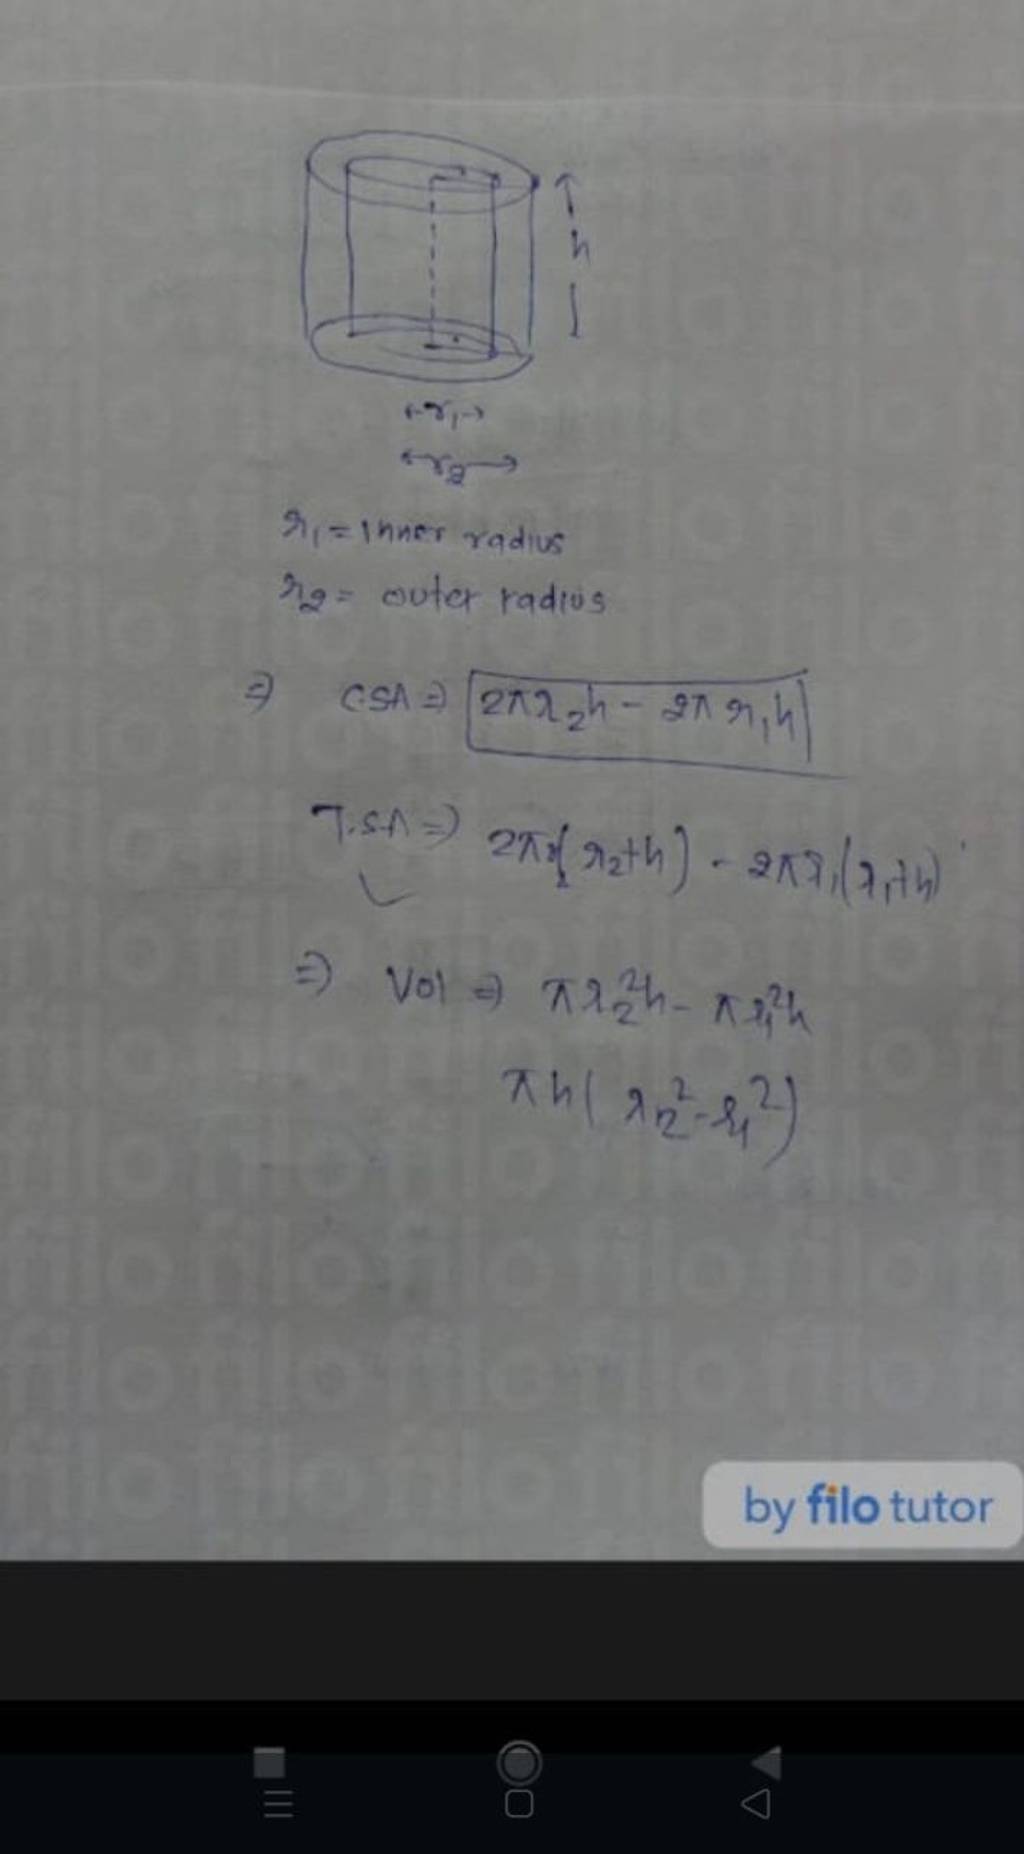 h
r₁
r₂
r₁ = Inner radius
r₂ = outer radius
⇒ C.S.A ⇒ 2πr₂h - 2πr₁h
T.S.A ⇒ 2πr₂(r₂+h) - 2πr₁(r₁+h)
⇒ Vol ⇒ πr₂²h - πr₁²h
πh(r₂²-r₁²)
by filo tutor